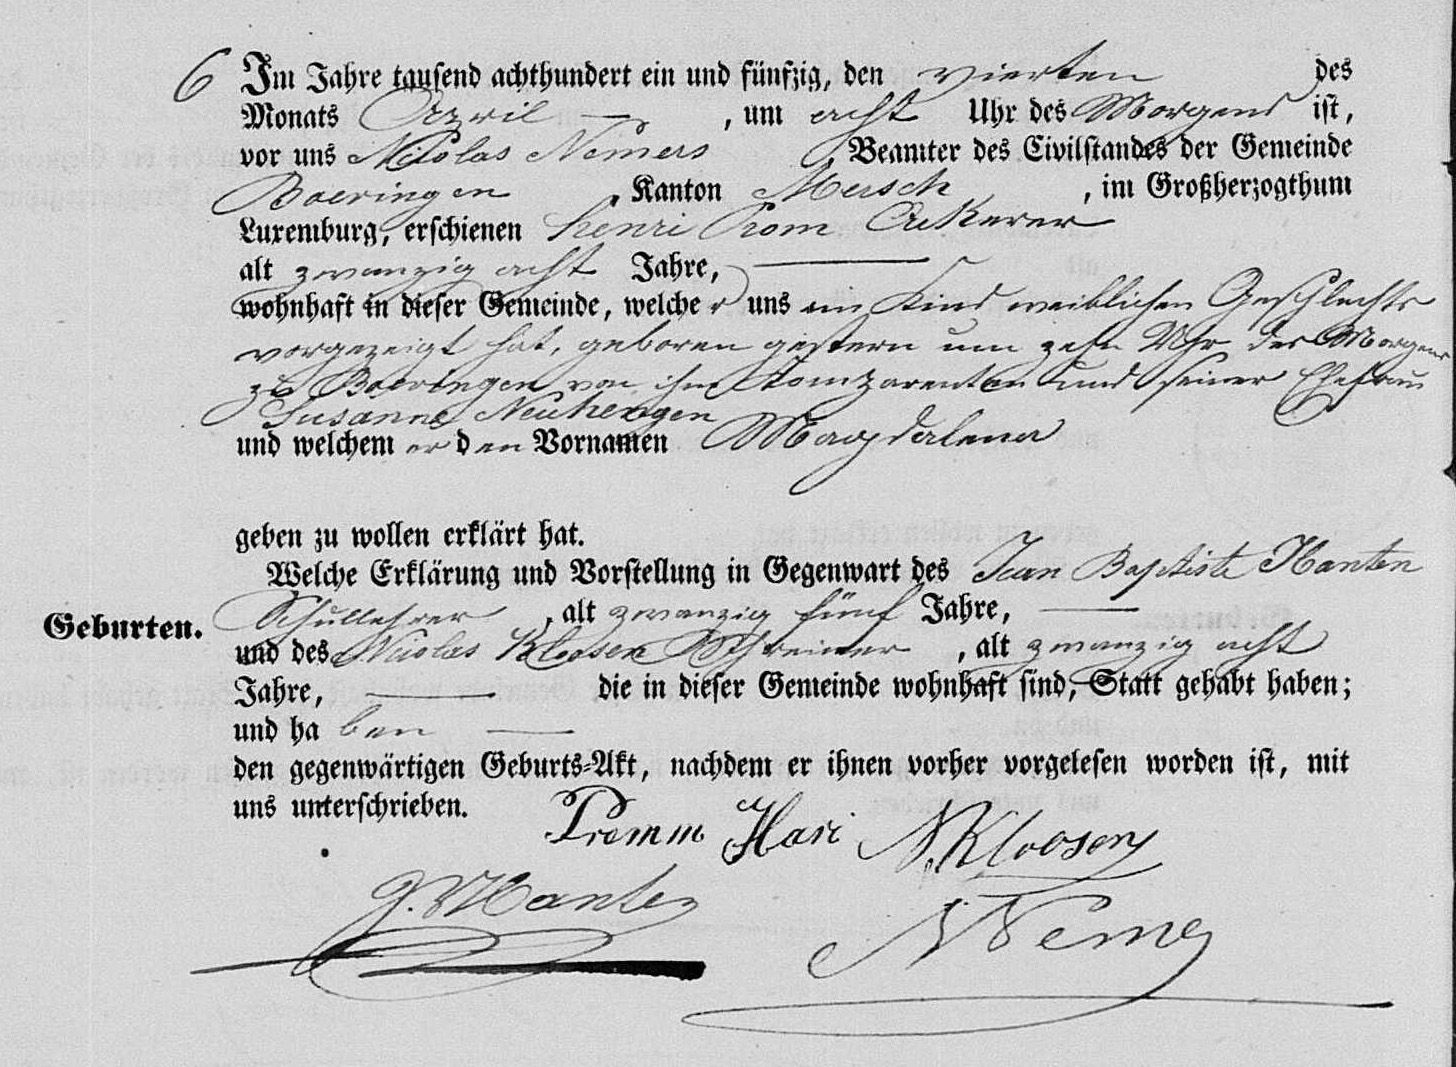 6 Im Jahre tausend achthundert ein und fünfzig, den vierten des
Monats April — , um acht Uhr des Morgens ist,
vor uns Nicolas Nemers , Beamter des Civilstandes der Gemeinde
Boevingen , Kanton Mersch , im Großherzogthum
Luxemburg, erschienen henri From Ackerer
alt zwanzig acht Jahre, —
wohnhaft in dieser Gemeinde, welcher uns ein Kind weiblichen Geschlechts
vorgezeigt hat, geboren gestern um zehn Uhr des Morgens
zu Boevingen von ihm Komparenten und seiner Ehefrau
Susanne Neuhengen
und welchem er den Vornamen Magdalena
geben zu wollen erklärt hat.
Welche Erklärung und Vorstellung in Gegenwart des Jean Baptiste Hanten
Schullehrer , alt zwanzig fünf Jahre, —
Geburten.
und des Nicolas Kloosen Schreiner , alt zwanzig acht
Jahre, — die in dieser Gemeinde wohnhaft sind, Statt gehabt haben;
und haben —
den gegenwärtigen Geburts-Akt, nachdem er ihnen vorher vorgelesen worden ist, mit
uns unterschrieben.
Promm Hari N. Kloosen
J. Hanten